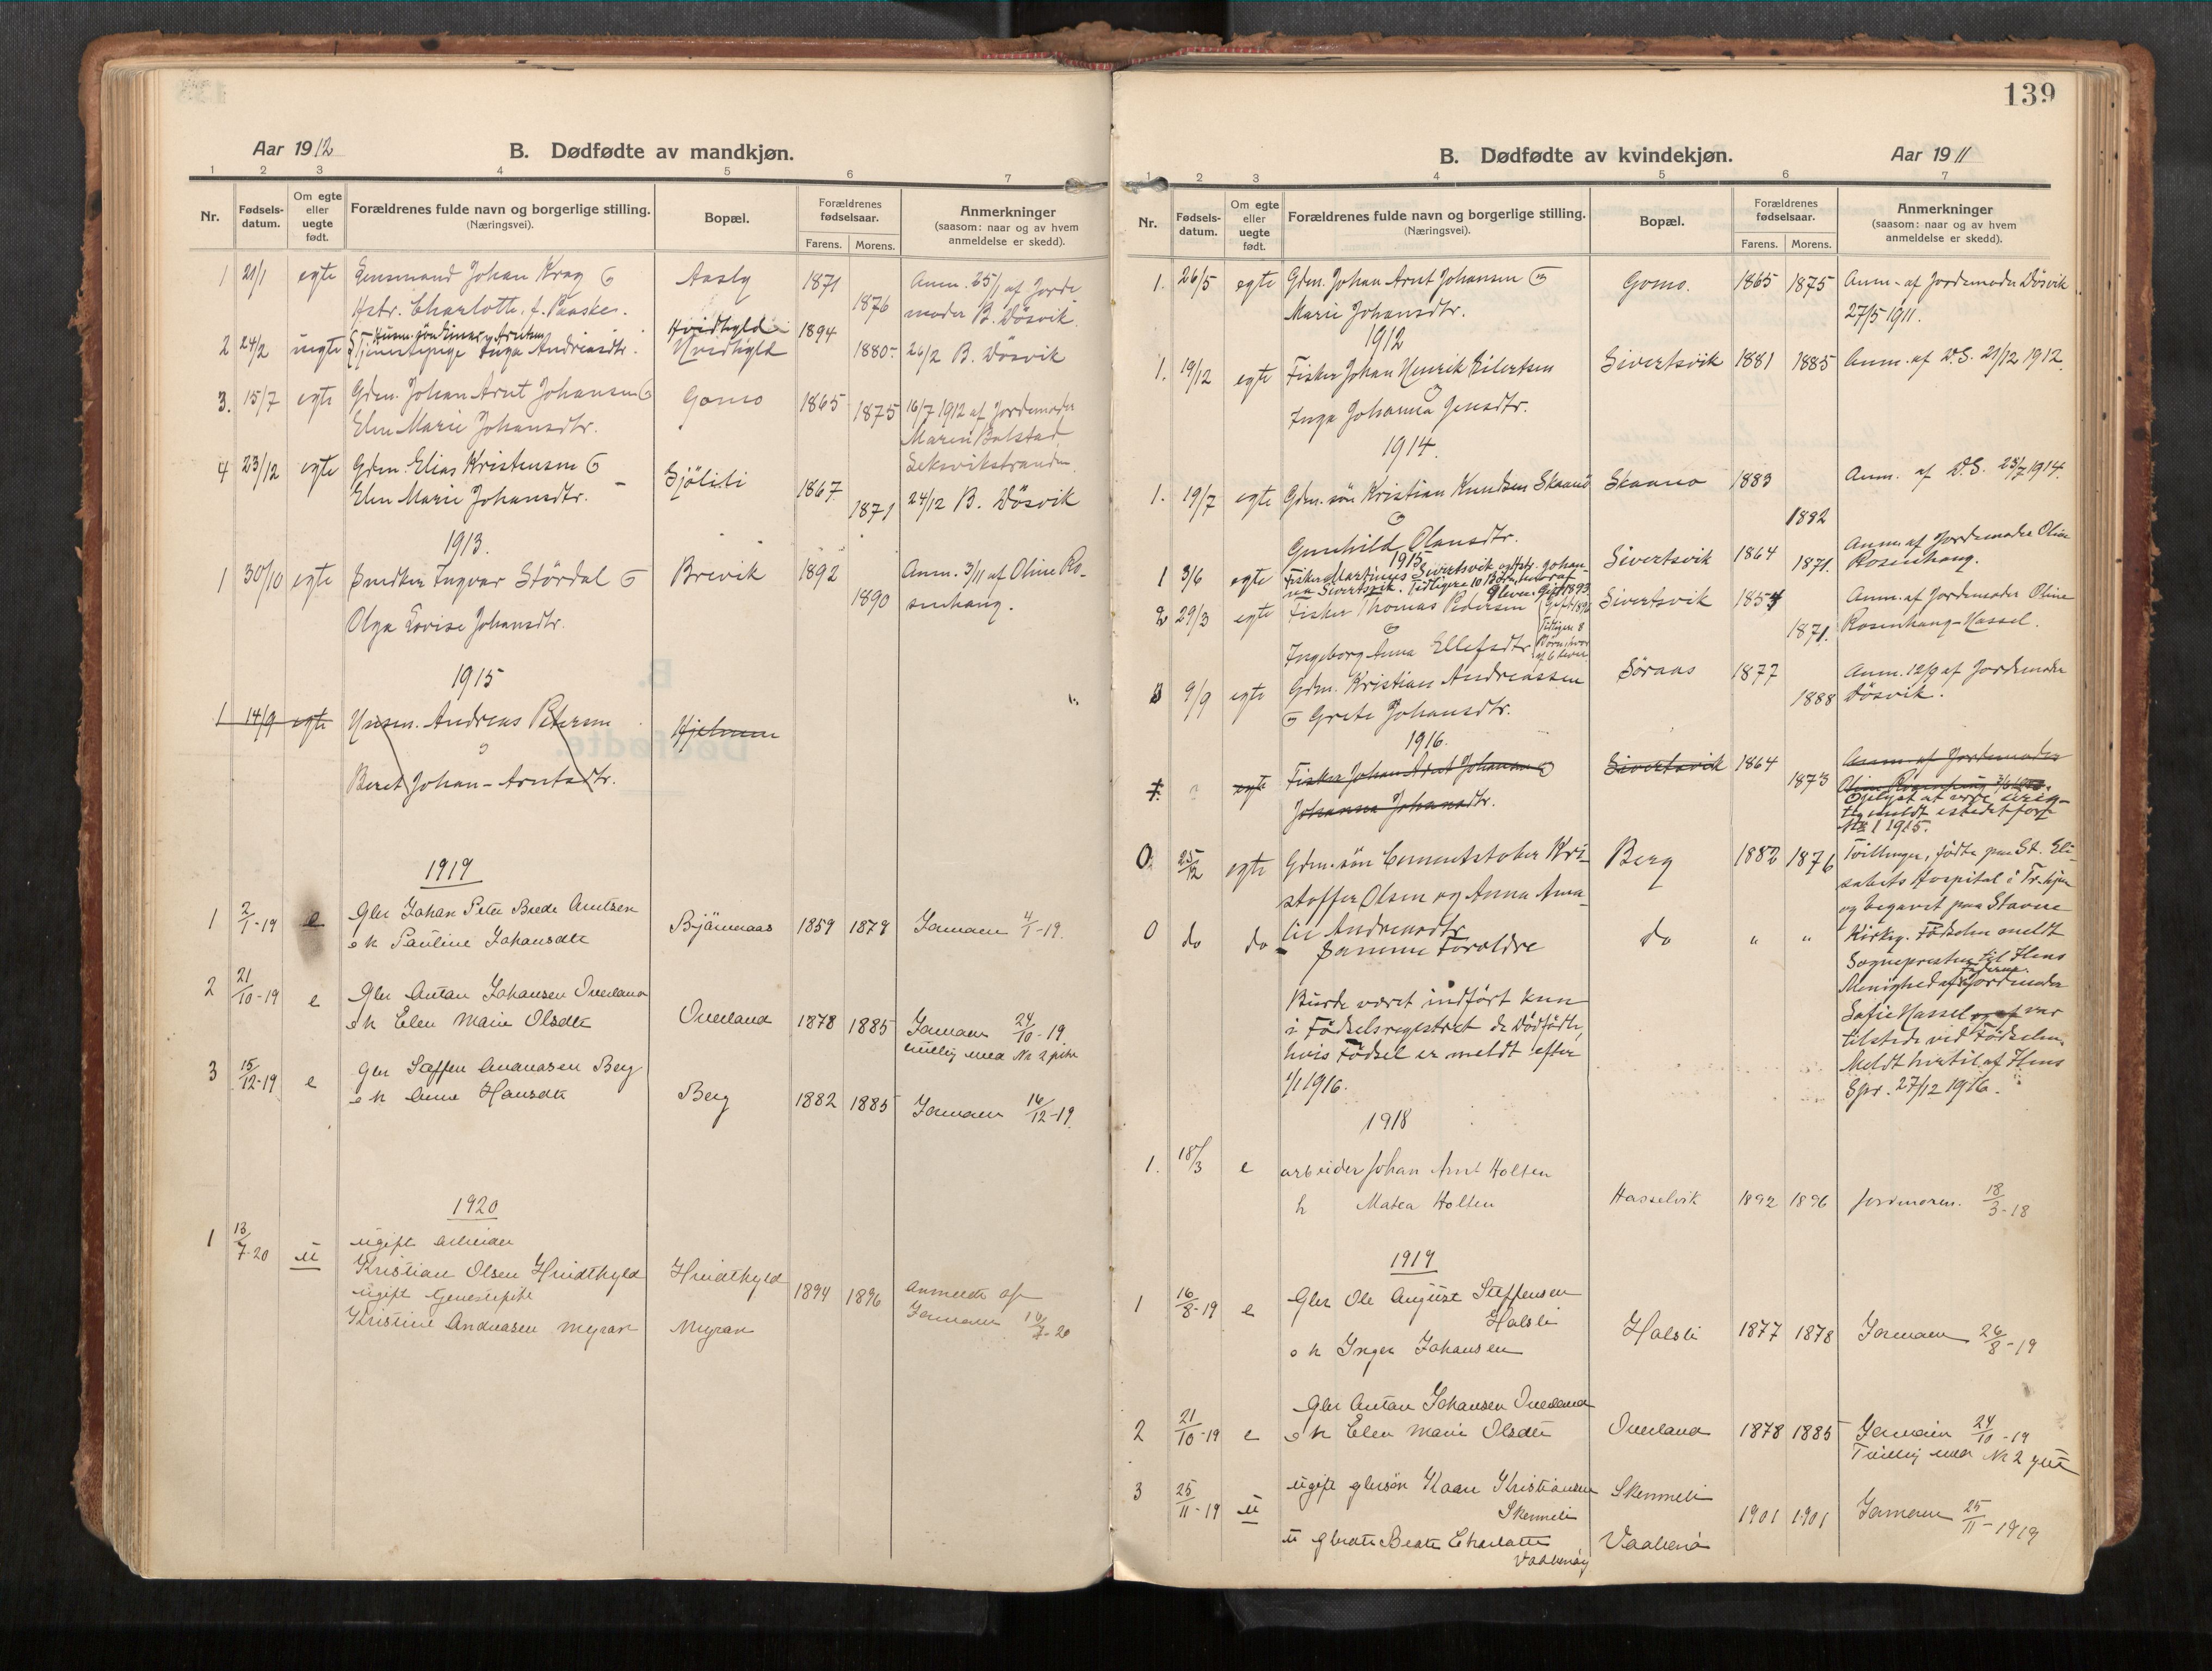 Aar 1912
B. Dødfødte av mandkjøn.
1 2 3 4 5 6 7
Nr.
Fødsels-
datum.
Om egte
eller
uegte
født.
Forældrenes fulde navn og borgerlige stilling.
(Næringsvei).
Bopæl.
Forældrenes
fødselsaar.
Farens. Morens.
Anmerkninger
(saasom: naar og av hvem
anmeldelse er skedd).
1 21/1 egte Lensmand Johan Krag Aasly 1871 Anm. 25/1 af Jorde
Hstr. Charlotte, f. Paaske. 1876 moder B. Døsvik.
Hvidhyld 1894
2 24/2 uegte Tjenestepige Inga Andreasdtr. Hvidhyld 1880 26/2 B. Døsvik
3. 15/7 egte Gdm. Johan Arnt Johansen Gomo 1865 1875 16/7 1912 af Jordemoder
Elen Marie Johansdtr. Maren Balstad
Leksvikstranden.
4 23/12 egte Gdm. Elias Kristensen Sjøliti 1867
Elen Marie Johansdtr. 1871 24/12 B. Døsvik
1913.
1 30/10 egte Snedker Ingvar Størdal Brevik 1892 Anm. 3/11 af Oline Ro-
1890 senhaug.
Olga Lovise Johansdtr.
1915
1 14/9 egte Husm. Andreas Petersen Hjelmen
Beret Johan-Arntsdtr.
1919
1 2/1-19 e Gbr Johan Peter Brede Arntsen
o h Pauline Johansdtr Bjørnaas 1859 1879 Jormoren 4/1-19.
2 21/10-19 e Gbr Anton Johansen Overland
o h Elen Marie Olsdtr Overland 1878 1885 Jormoren 24/10-19
tvilling med No 2 pike
3 15/12-19 e Gbr Steffen Andreasen Berg
o h Anne Hansdtr Berg 1882 1885 Jormoren 16/12-19.
1920
1 13/7-20 u ugift arbeider
Kristian Olsen Hvidthyld Hvidthyld 1894 1896 Anmeldt af
ugift tjenestepike Jormoren
Kristine Andreasen Myran Myran
139
B. Dødfødte av kvindekjøn.
Aar 1911
1 2 3 4 5 6 7
Nr.
Fødsels-
datum.
Om egte
eller
uegte
født.
Forældrenes fulde navn og borgerlige stilling.
(Næringsvei).
Bopæl.
Forældrenes
fødselsaar.
Farens. Morens.
Anmerkninger
(saasom: naar og av hvem
anmeldelse er skedd).
1. 26/5 egte Gdm. Johan Arnt Johansen Gomo. 1865 1875 Anm. af Jordemoder Døsvik
Marie Johansdtr. 27/5 1911.
1912
1. 19/12 egte Fisker Johan Henrik Eilertsen Sivertsvik 1881 1885 Anm. af D.S. 21/12 1912.
Inga Johanna Jensdtr.
1914.
1. 19/7 egte Gdm. søn Kristian Knudsen Skaanø Skaanø 1883 Anm. af D.S. 23/7 1914.
1892
Gunhild Olausdtr.
1915
1 3/6 egte Fisker Martinus Sivertsvik og Hstr. Johan- Sivertsvik 1864 1871. Anm. af Jordemoder Oline
na Sivertsvik. Tidligere 10 Børn, hvoraf Rosenhaug.
9 lever. Gift 1893
2 29/3 egte Fisker Thomas Pedersen Sivertsvik 1854 Anm. af Jordemoder Oline
Gift 1892
Tidligere 8
Børn, hvor
af 6 lever
Ingeborg Anna Ellefsdtr. 1871. Rosenhaug-Hassel.
3 9/9 egte Gdm. Kristian Andreassen Søraas 1877 Anm. 12/9 af Jordemoder
Grete Johansdtr. 1888 Døsvik.
1916.
1. egte Fisker Johan Arnt Johansen Sivertsvik 1864 Anm. af Jordemoder
Johanna Johansdtr. 1873
Oplyst at være urig-
tig meldt istedetfor
No 1 1915.
0 25/12 egte Gdm. søn Cementstøber Kri- Berg 1882 1876 Tvillinger, fødte paa St. Eli-
stoffer Olsen og Anna Ama- sabets Hospital i Tr.hjem
lie Andreasdtr. og begravet paa Stavne
0 do do Samme Forældre do " " Kirkeg. Fødselen meldt
Sognepresten til Ilens
Menighed af Faderen. Jordmoder
Burde været indført kun Sofie Hassel var
i Fødselsregistret de Dødfødte, tilstede ved Fødselen.
hvis Fødsel er meldt efter Meldt hertil af Ilens
1/1 1916. Spr. 27/12 1916.
1918
1. 18/3 e arbeider Johan Arnt Holten
h Matea Holten Hasselvik 1892 1896 Jordmoren. 18/3-18
1919
1 16/8-19 e Gbr Ole August Steffensen
Halsli Halsli 1877 1878 Jormoren 26/8-19
o h Inger Johansen
2 21/10-19 e Gbr Anton Johansen Overland
o h Elen Marie Olsdtr Overland 1878 1885 Jormoren 24/10-19
Tvilling med No 2 gut
3 25/11-19 u ugift gbrsøn Kaare Kristiansen Skenneli
Skenneli 1901 1901 Jormoren 25/11-1919
u gbrdtr Beate Charlotte Vaabenø
Vaabenøy